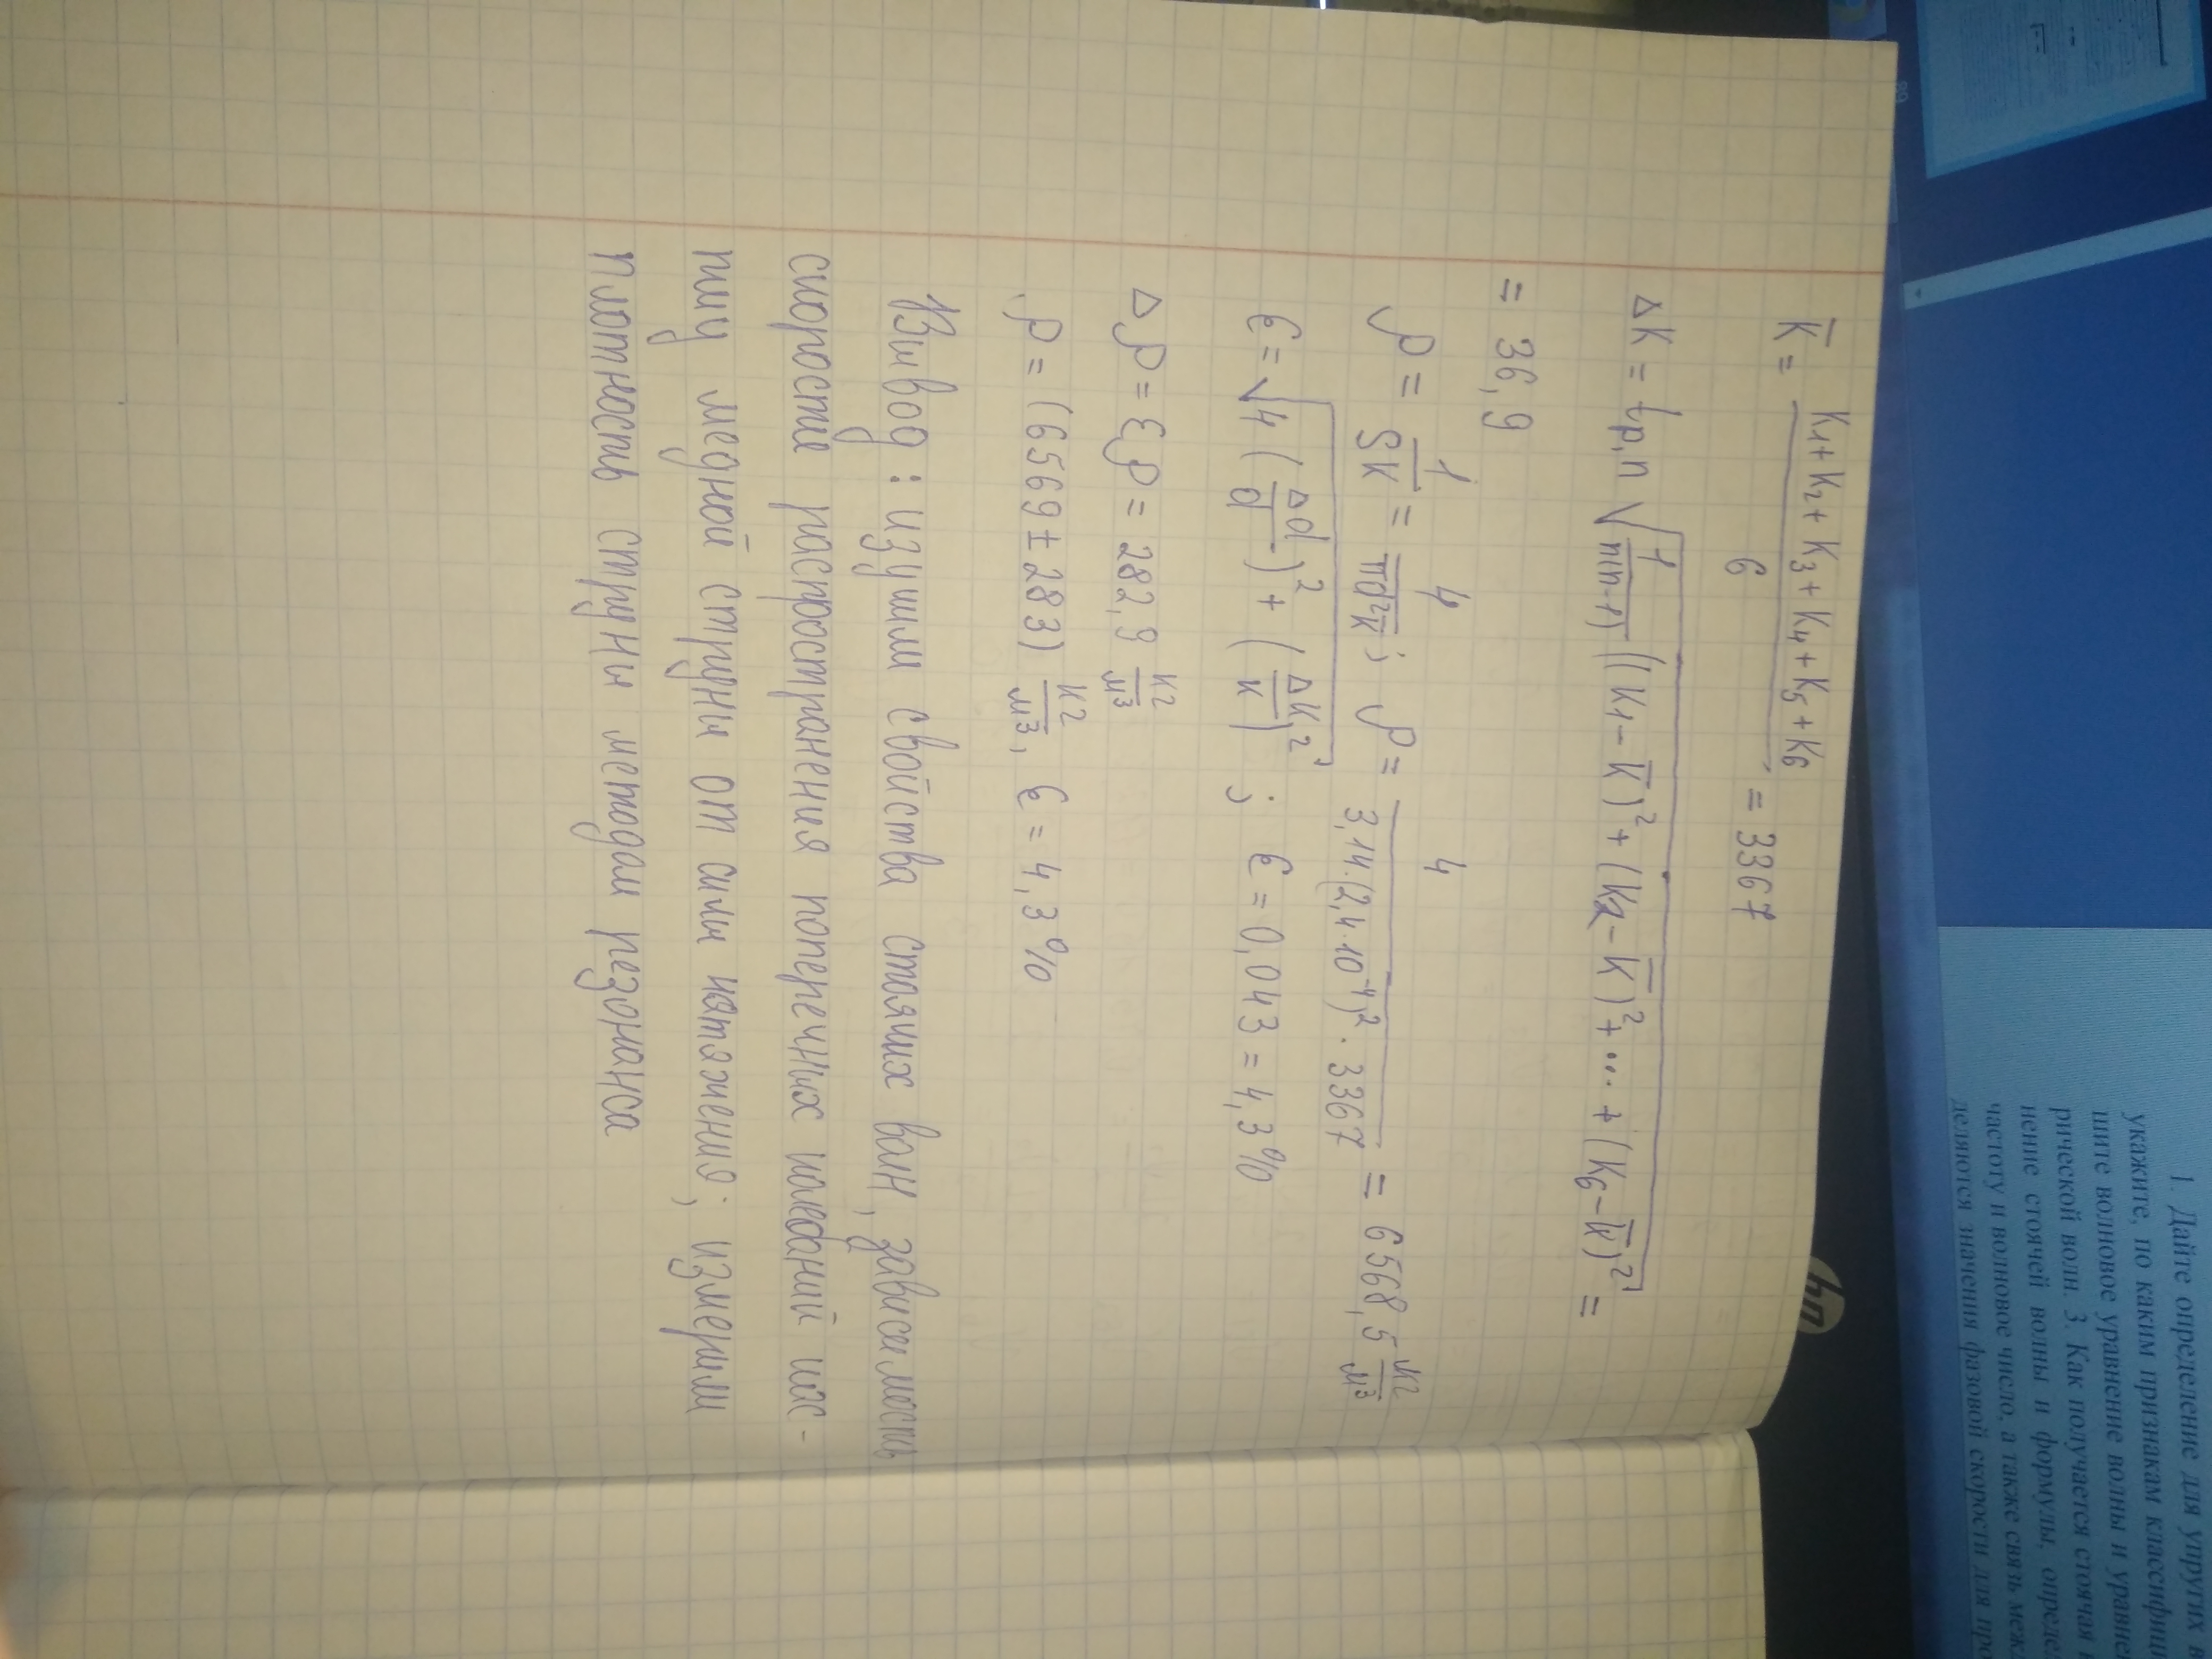 1. Дайте определение для упругих в
укажите, по каким признакам классифици
шите волновое уравнение волны и уравне
рической волн. 3. Как получается стоячая
нение стоячей волны и формулы, опреде
частоту и волновое число, а также связь меж
деляются значения фазовой скорости для про
89
hp
K̄ = (K₁ + K₂ + K₃ + K₄ + K₅ + K₆) / 6 = 3367
ΔK = t_{p,n} √(1/(n(n-1)) ((K₁ - K̄)² + (K₂ - K̄)² + ... + (K₆ - K̄)² =
= 36,9
ρ = 1/(SK) = 4/(πd²K̄); ρ = 4/(3,14·(2,4·10⁻⁴)²·3367) = 6568,5 кг/м³
Ɛ = √(4(Δd/d)² + (ΔK/K)²); Ɛ = 0,043 = 4,3%
Δρ = Ɛρ = 282,9 кг/м³
ρ = (6569 ± 283) кг/м³, Ɛ = 4,3%
Вывод: изучили свойства стоячих волн, зависимость
скорости распространения поперечных колебаний
медной струны от силы натяжения; измерили
плотность струны методом резонанса